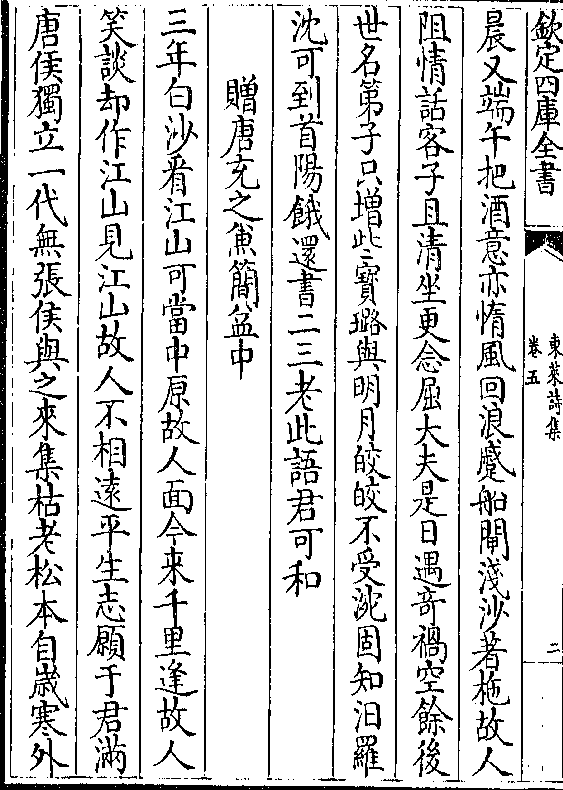 欽定四庫全書
東萊詩集
卷五
二
晨又端午把酒意亦惰風回浪蹙船閘淺沙著柂故人
阻情話客子且清坐更念屈大夫是日遇奇禍空餘後
世名第子只增些寶璐與明月皎皎不受涴固知汨羅
沈可到首陽餓還書二三老此語君可和
贈唐充之兼簡益中
三年白沙看江山可當中原故人面今来千里逢故人
笑談却作江山見江山故人不相遠平生志願于君滿
唐侯獨立一代無張侯與之來集枯老松本自歲寒外